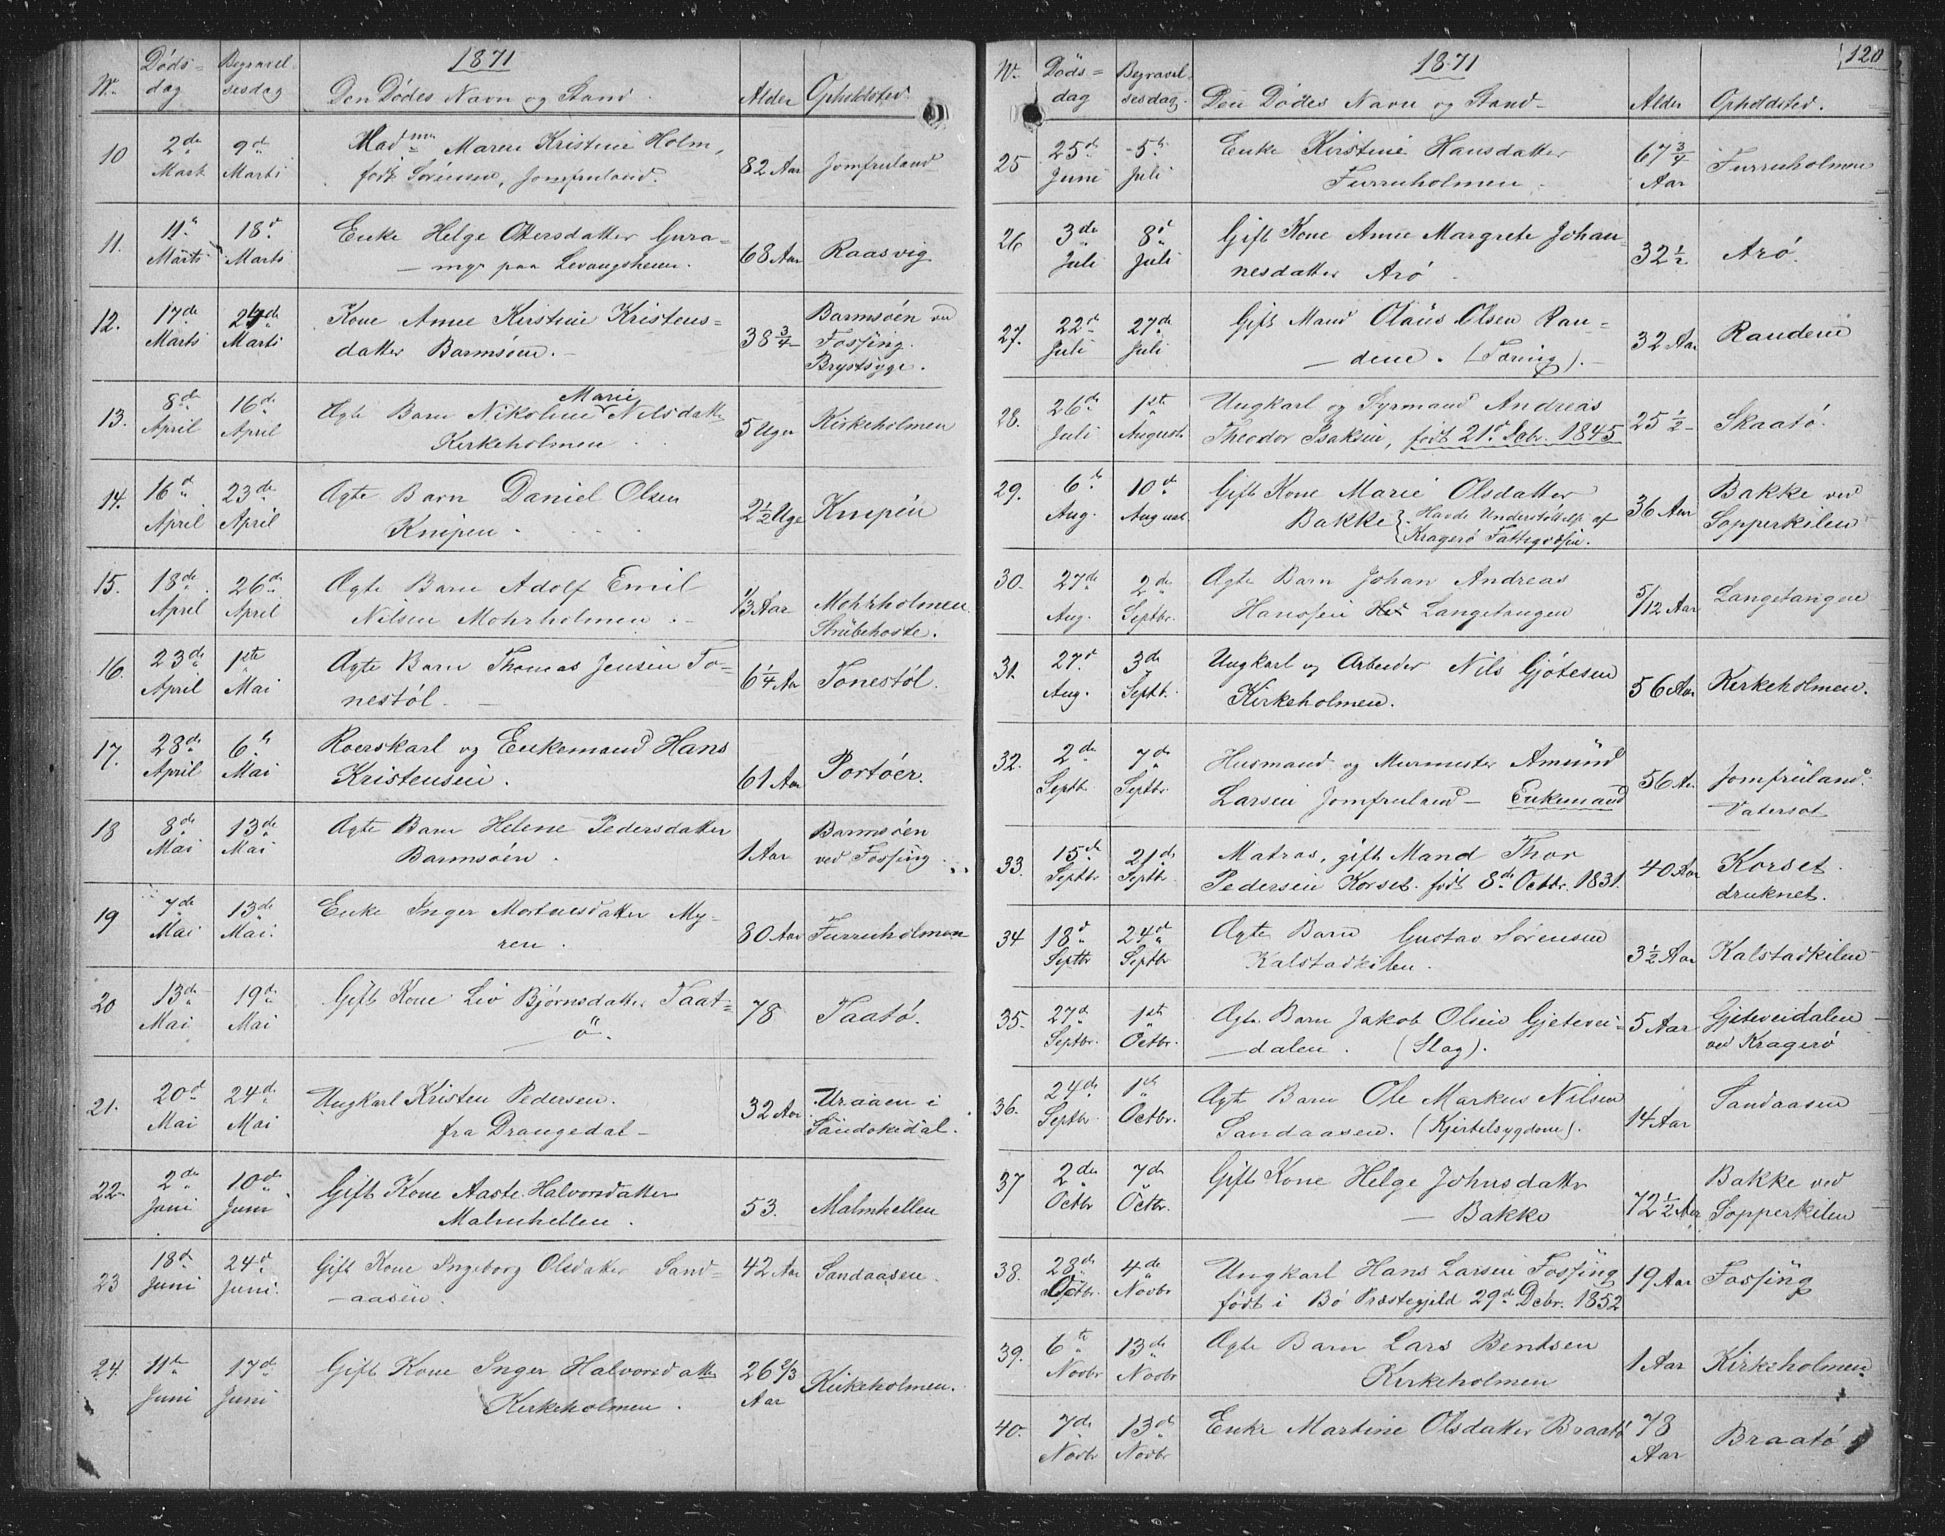 1871
N. Døds= dag Begravelsesdag Den Dødes Navn og Stand. Alder Opholdsted.
10 2de Mart 9d Marti Madme Maren Kristine Holm, 82 Aar Jomfruland
født Sørensen, Jomfruland.
11. 11te Marti 18d Marti Enke Helge Ottersdatter 68 Aar Raasvig
paa Levangsheien.
12. 17de Marti Marti Kone Anne Kirstine Kristens= 38 3/4 Barmsøen ved
datter Barmsøen. Fossing.
Brystsyge.
13. 8de April 16de April Ægte Barn Nikoline Marie Nilsdatter 5 Uger Kirkeholmen
Kirkeholmen
14. 16d April 23de April Ægte Barn Daniel Olsen 2 1/2 Uge Knipen
Knipen.
15. 18de April 26de April Ægte Barn Adolf Emil 1/3 Aar Mohrholmen
Nilsen Mohrholmen. Strubehoste.
16. 23de April 1ste Mai Ægte Barn Thomas Jensen To= 6 1/4 Aar Tonestøl.
nestøl.
17. 28de April 6te Mai Roerskarl og Enkemand Hans 61 Aar Portøer.
Kristensen.
18 8de Mai 13de Mai Ægte Barn Helene Pedersdatter 1 Aar Barmsøen
Barmsøen. ved Fossing.
19 7de Mai 13de Mai. Enke Inger Mortensdatter My- 80 Aar Furruholmen
ren.
20 13de Mai 19de Mai Gift Kone Liv Bjørnsdatter Taat= 78 Taatø.
ø.
21. 20d Mai 24de Mai Ungkarl Kristen Pedersen. 32 Aar Uraaen i
fra Drangedal Sandøkedal.
22. 2de Juni 10de Juni Gift Kone Aaste Halvorsdatter 53. Malmhellen
Malmhellen.
23 18d Juni 24d Juni. Gift Kone Ingeborg Olsdatter Sand= 42 Aar Sandaasen.
aasen.
24. 11te Juni 17de Juni Gift Kone Inger Halvorsdatter 26 2/3 Aar Kirkeholmen.
Kirkeholmen.
120
1871
N. Døds= dag Begravelsesdag. Den Dødes Navn og Stand Alder Opholdsted.
25 25d Juni 5te Juli Enke Kirstine Hansdatter 67 3/4 Aar Furruholmen
Furruholmen.
26 3de Juli 8d Juli Gift Kone Anne Margrete Johan= 32 1/2 Arø.
nesdatter Arø.
27. 22d Juli 27de Juli Gift Mand Olaus Olsen Ran= 32 Aar Randene
dene. (Tæring).
28. 26de Juli 1ste August Ungkarl og Syrmand Andreas 25 1/2 Skaatø.
Theodor Isaksen, født 21d 1845
29. 6te Aug. 10d August Gift Kone Marie Olsdatter 36 Aar Bakke ved
Bakke { Havde Understøttelse af Sopperkilen
Kragerø Fattigvæsen.
30. 27de Aug. 2de Septbr. Ægte Barn Johan Andreas 5/12 Aar Langetangen
Hanssen Langetangen
31. 27d Aug. 3de Septb. Ungkarl og Arbeider Nils Gjøtesen 56 Aar Kirkeholmen.
Kirkeholmen.
32. 2de Septb. 7de Septbr Husmand og Murmester Amund 56 Aar Jomfruland.
Larsen Jomfruland - Enkemand Vatersot
33. 15de Septbr 21de Septbr. Matros, gift Mand Thor 40 Aar Korset.
Pedersen Korset. født 8de Octbr. 1831. druknet.
34 18d Septbr 24de Septbr Ægte Barn Gustav Sørensen 3 1/2 Aar Kalstadkilen
Kalstadkilen.
35. 27d Septbr. 1ste Octbr. Ægte Barn Jakob Olsen Gjetevei= 5 Aar Gjeteveidalen
dalen. (Slag). ved Kragerø
36. 24de Septbr 1ste Octbr. Ægte Barn Ole Markus Nilsen 14 Aar Sandaasen
Sandaasen. (Kjirtelsygdom).
37 2den Octbr 7de Octbr. Gift Kone Helge Johnsdatter 72 1/2 Aar Bakke ved
Bakke Sopperkilen
38. 28de Octbr. 4de Novbr Ungkarl Hans Larsen Fossing 19 Aar Fossing
født i Bø Præstegjeld 29d Decbr. 1852
39. 6te Novbr 13de Novbr Ægte Barn Lars Bentsen 1 Aar Kirkeholmen
Kirkeholmen
40. 7de Novbr 13de Novbr Enke Martine Olsdatter Braatø 78 Aar Braatø